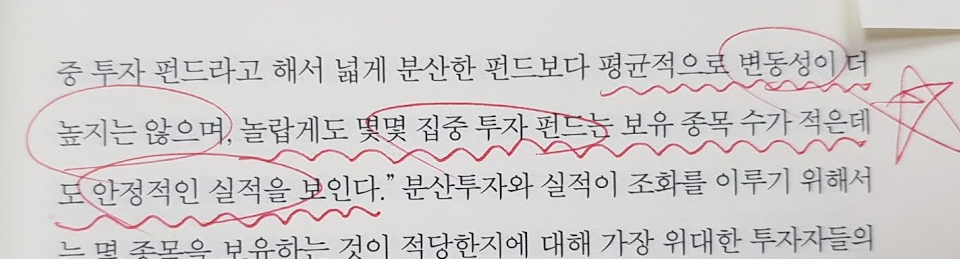 중 투자 펀드라고 해서 넓게 분산한 펀드보다 평균적으로 변동성이 더
높지는 않으며, 놀랍게도 몇몇 집중 투자 펀드는 보유 종목 수가 적은데
도 안정적인 실적을 보인다.” 분산투자와 실적이 조화를 이루기 위해서
는 몇 종목을 보유하는 것이 적당한지에 대해 가장 위대한 투자자들의